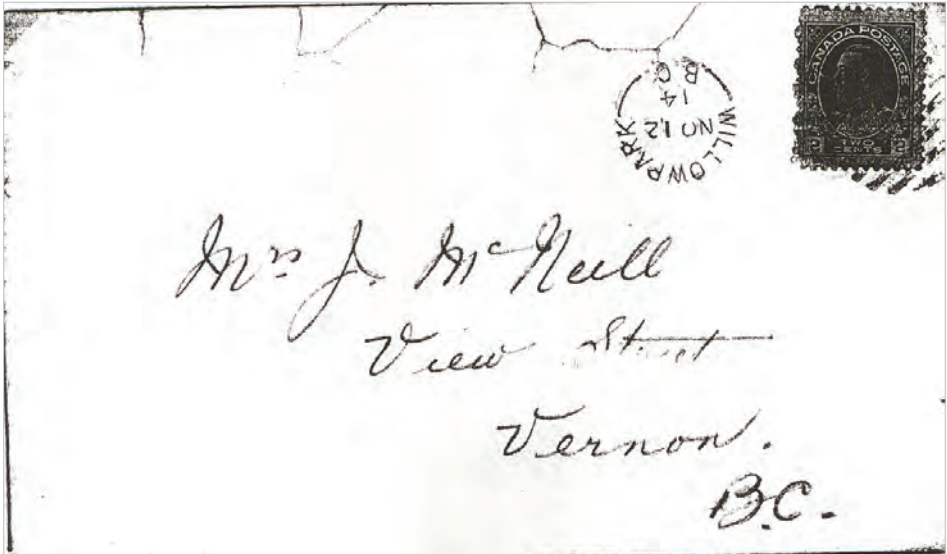 CANADA POSTAGE
2 TWO CENTS 2
WILLOWPARK
NO 12
14
B C
Mrs J. McNeill
View Street
Vernon.
B.C.